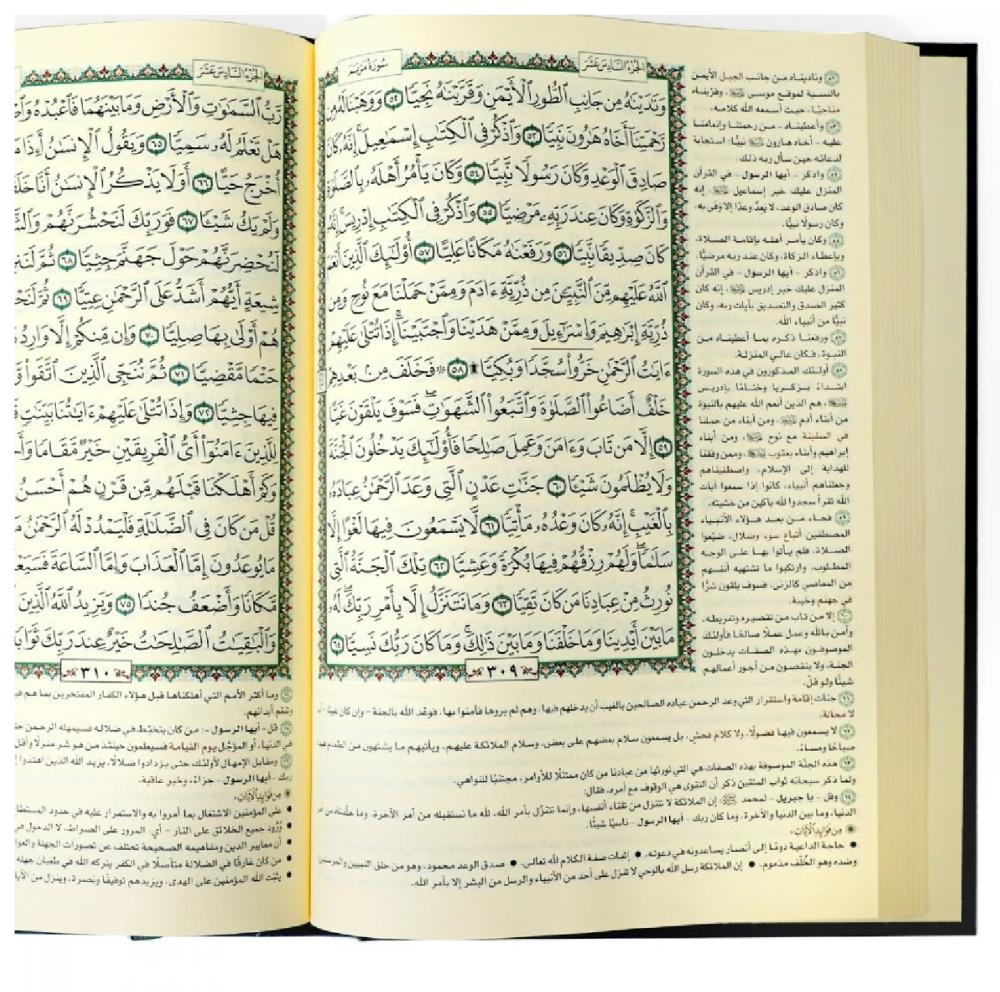 سُورَةُ مَرْيَمَ
الجُزْءُ السَّادِسَ عَشَرَ
وَنَٰدَيْنَٰهُ مِن جَانِبِ ٱلطُّورِ ٱلْأَيْمَنِ وَقَرَّبْنَٰهُ نَجِيًّا ٥٢ وَوَهَبْنَا لَهُۥ مِن
رَّحْمَتِنَآ أَخَاهُ هَٰرُونَ نَبِيًّا ٥٣ وَٱذْكُرْ فِى ٱلْكِتَٰبِ إِسْمَٰعِيلَ ۚ إِنَّهُۥ كَانَ
صَادِقَ ٱلْوَعْدِ وَكَانَ رَسُولًا نَّبِيًّا ٥٤ وَكَانَ يَأْمُرُ أَهْلَهُۥ بِٱلصَّلَوٰةِ
وَٱلزَّكَوٰةِ وَكَانَ عِندَ رَبِّهِۦ مَرْضِيًّا ٥٥ وَٱذْكُرْ فِى ٱلْكِتَٰبِ إِدْرِيسَ ۚ إِنَّهُۥ
كَانَ صِدِّيقًا نَّبِيًّا ٥٦ وَرَفَعْنَٰهُ مَكَانًا عَلِيًّا ٥٧ أُو۟لَٰٓئِكَ ٱلَّذِينَ أَنْعَمَ
ٱللَّهُ عَلَيْهِم مِّنَ ٱلنَّبِيِّـۧنَ مِن ذُرِّيَّةِ ءَادَمَ وَمِمَّنْ حَمَلْنَا مَعَ نُوحٍ وَمِن
ذُرِّيَّةِ إِبْرَٰهِيمَ وَإِسْرَٰٓءِيلَ وَمِمَّنْ هَدَيْنَا وَٱجْتَبَيْنَآ ۚ إِذَا تُتْلَىٰ عَلَيْهِمْ
ءَايَٰتُ ٱلرَّحْمَٰنِ خَرُّوا۟ سُجَّدًا وَبُكِيًّا ۩ ٥٨ ۞ فَخَلَفَ مِنۢ بَعْدِهِمْ
خَلْفٌ أَضَاعُوا۟ ٱلصَّلَوٰةَ وَٱتَّبَعُوا۟ ٱلشَّهَوَٰتِ ۖ فَسَوْفَ يَلْقَوْنَ غَيًّا
٥٩ إِلَّا مَن تَابَ وَءَامَنَ وَعَمِلَ صَٰلِحًا فَأُو۟لَٰٓئِكَ يَدْخُلُونَ ٱلْجَنَّةَ
وَلَا يُظْلَمُونَ شَيْـًٔا ٦٠ جَنَّٰتِ عَدْنٍ ٱلَّتِى وَعَدَ ٱلرَّحْمَٰنُ عِبَادَهُۥ
بِٱلْغَيْبِ ۚ إِنَّهُۥ كَانَ وَعْدُهُۥ مَأْتِيًّا ٦١ لَّا يَسْمَعُونَ فِيهَا لَغْوًا إِلَّا
سَلَٰمًا ۖ وَلَهُمْ رِزْقُهُمْ فِيهَا بُكْرَةً وَعَشِيًّا ٦٢ تِلْكَ ٱلْجَنَّةُ ٱلَّتِى
نُورِثُ مِنْ عِبَادِنَا مَن كَانَ تَقِيًّا ٦٣ وَمَا نَتَنَزَّلُ إِلَّا بِأَمْرِ رَبِّكَ ۖ لَهُۥ
مَا بَيْنَ أَيْدِينَا وَمَا خَلْفَنَا وَمَا بَيْنَ ذَٰلِكَ ۚ وَمَا كَانَ رَبُّكَ نَسِيًّا ٦٤
٣٠٩
٥٢ وناديناه من جانب الجبل الأيمن
بالنسبة لموقع موسى ﷺ، وقربناه
مناجيًا، حيث أسمعه الله كلامه.
٥٣ وأعطيناه - من رحمتنا وإنعامنا
عليه - أخاه هارون ﷺ نبيًّا؛ استجابة
لدعائه حين سأل ربه ذلك.
٥٤ واذكر - أيها الرسول - في القرآن
المنزل عليك خبر إسماعيل ﷺ، إنه
كان صادق الوعد، لا يعد وعدًا إلا وفى به،
وكان رسولًا نبيًّا.
٥٥ وكان يأمر أهله بإقامة الصلاة،
وبإعطاء الزكاة، وكان عند ربه مرضيًّا.
٥٦ واذكر - أيها الرسول - في القرآن
المنزل عليك خبر إدريس ﷺ، إنه كان
كثير الصدق والتصديق بآيات ربه، وكان
نبيًّا من أنبياء الله.
٥٧ ورفعنا ذكره بما أعطيناه من
النبوة، فكان عالي المنزلة.
٥٨ أولئك المذكورون في هذه السورة
ابتداءً بزكريا وختامًا بإدريس
ﷺ، هم الذين أنعم الله عليهم بالنبوة
من أبناء آدم ﷺ، ومن أبناء من حملنا
في السفينة مع نوح ﷺ، ومن أبناء
إبراهيم وأبناء يعقوب ﷺ، وممن وفقنا
للهداية إلى الإسلام، واصطفيناهم
وجعلناهم أنبياء، كانوا إذا سمعوا آيات
الله تقرأ سجدوا لله باكين من خشيته.
٥٩ فجاء من بعد هؤلاء الأنبياء
المصطفين أتباع سوء وضلال، ضيّعوا
الصلاة، فلم يأتوا بها على الوجه
المطلوب، وارتكبوا ما تشتهيه أنفسهم
من المعاصي كالزنى، فسوف يلقون شرًّا
في جهنم وخيبة.
٦٠ إلا من تاب من تقصيره وتفريطه،
وآمن بالله وعمل عملًا صالحًا فأولئك
الموصوفون بهذه الصفات يدخلون
الجنة، ولا ينقصون من أجور أعمالهم
شيئًا ولو قلّ.
٦١ جنات إقامة واستقرار التي وعد الرحمن عباده الصالحين بالغيب أن يدخلهم فيها، وهم لم يروها فآمنوا بها، فوعد الله بالجنة - وإن كان غيبًا -
لا محالة.
٦٢ لا يسمعون فيها فضولًا، ولا كلام فحش، بل يسمعون سلام بعضهم على بعض، وسلام الملائكة عليهم، ويأتيهم ما يشتهون من الطعام فيها
صباحًا ومساءً.
٦٣ هذه الجنة الموصوفة بهذه الصفات هي التي نورثها من عبادنا من كان ممتثلًا للأوامر، مجتنبًا للنواهي.
ولما ذكر سبحانه ثواب المتقين ذكر أن التقوى هي الوقوف مع أمره، فقال:
٦٤ وقل - يا جبريل - لمحمد ﷺ: إن الملائكة لا تتنزل من تلقاء أنفسها، وإنما تتنزّل بأمر الله، لله ما نستقبله من أمر الآخرة، وما خلفناه من
الدنيا، وما بين الدنيا والآخرة، وما كان ربك - أيها الرسول - ناسيًا شيئًا.
من فوائد الآيات
• حاجة الداعية دومًا إلى أنصار يساعدونه في دعوته. • إثبات صفة الكلام لله تعالى. • صدق الوعد محمود، وهو من خلق النبيين والمرسلين
وضده وهو الخُلْف مذموم. • إن الملائكة رسل الله بالوحي لا تنزل على أحد من الأنبياء والرسل من البشر إلا بأمر الله.
الجُزْءُ السَّادِسَ عَشَرَ
رَّبُّ ٱلسَّمَٰوَٰتِ وَٱلْأَرْضِ وَمَا بَيْنَهُمَا فَٱعْبُدْهُ
هَلْ تَعْلَمُ لَهُۥ سَمِيًّا ٦٥ وَيَقُولُ ٱلْإِنسَٰنُ أَءِذَا مَا
أُخْرَجُ حَيًّا ٦٦ أَوَلَا يَذْكُرُ ٱلْإِنسَٰنُ أَنَّا
وَلَمْ يَكُ شَيْـًٔا ٦٧ فَوَرَبِّكَ لَنَحْشُرَنَّهُمْ
لَنُحْضِرَنَّهُمْ حَوْلَ جَهَنَّمَ جِثِيًّا ٦٨ ثُمَّ
شِيعَةٍ أَيُّهُمْ أَشَدُّ عَلَى ٱلرَّحْمَٰنِ عِتِيًّا ٦٩ ثُمَّ
هُمْ أَوْلَىٰ بِهَا صِلِيًّا ٧٠ وَإِن مِّنكُمْ إِلَّا وَارِدُ
حَتْمًا مَّقْضِيًّا ٧١ ثُمَّ نُنَجِّى ٱلَّذِينَ ٱتَّقَوا۟
فِيهَا جِثِيًّا ٧٢ وَإِذَا تُتْلَىٰ عَلَيْهِمْ ءَايَٰتُنَا بَيِّنَٰتٍ
لِلَّذِينَ ءَامَنُوٓا۟ أَىُّ ٱلْفَرِيقَيْنِ خَيْرٌ مَّقَامًا
وَكَمْ أَهْلَكْنَا قَبْلَهُم مِّن قَرْنٍ هُمْ أَحْسَنُ
قُلْ مَن كَانَ فِى ٱلضَّلَٰلَةِ فَلْيَمْدُدْ لَهُ ٱلرَّحْمَٰنُ
مَا يُوعَدُونَ إِمَّا ٱلْعَذَابَ وَإِمَّا ٱلسَّاعَةَ
مَّكَانًا وَأَضْعَفُ جُندًا ٧٥ وَيَزِيدُ ٱللَّهُ ٱلَّذِينَ
وَٱلْبَٰقِيَٰتُ ٱلصَّٰلِحَٰتُ خَيْرٌ عِندَ رَبِّكَ ثَوَابًا
٣١٠
وما أكثر الأمم التي أهلكناها قبل هؤلاء الكفار المفتخرين بما هم
وتنعم أبدانهم.
قل - أيها الرسول -: من كان يتخبّط في ضلاله فسيمهله الرحمن
في الدنيا، أو المؤجّل يوم القيامة فسيعلمون حينئذ من هو شر منزلًا وأقل
ومقابل الإمهال لأولئك حتى يزداد ضلالًا، يزيد الله الذين اهتدوا
ربك - أيها الرسول - جزاءً، وخير عاقبة.
من فوائد الآيات
• على المؤمنين الاشتغال بما أمروا به والاستمرار عليه في حدود
• وُرُود جميع الخلائق على النار - أي: المرور على الصراط، لا الدخول في
• أن معايير الدين ومفاهيمه الصحيحة تختلف عن تصورات الجهلة
• من كان غارقًا في الضلالة متأصلًا في الكفر يتركه الله في طغيان جهله
• يثبّت الله المؤمنين على الهدى، ويزيدهم توفيقًا ونصرة، وينزل من